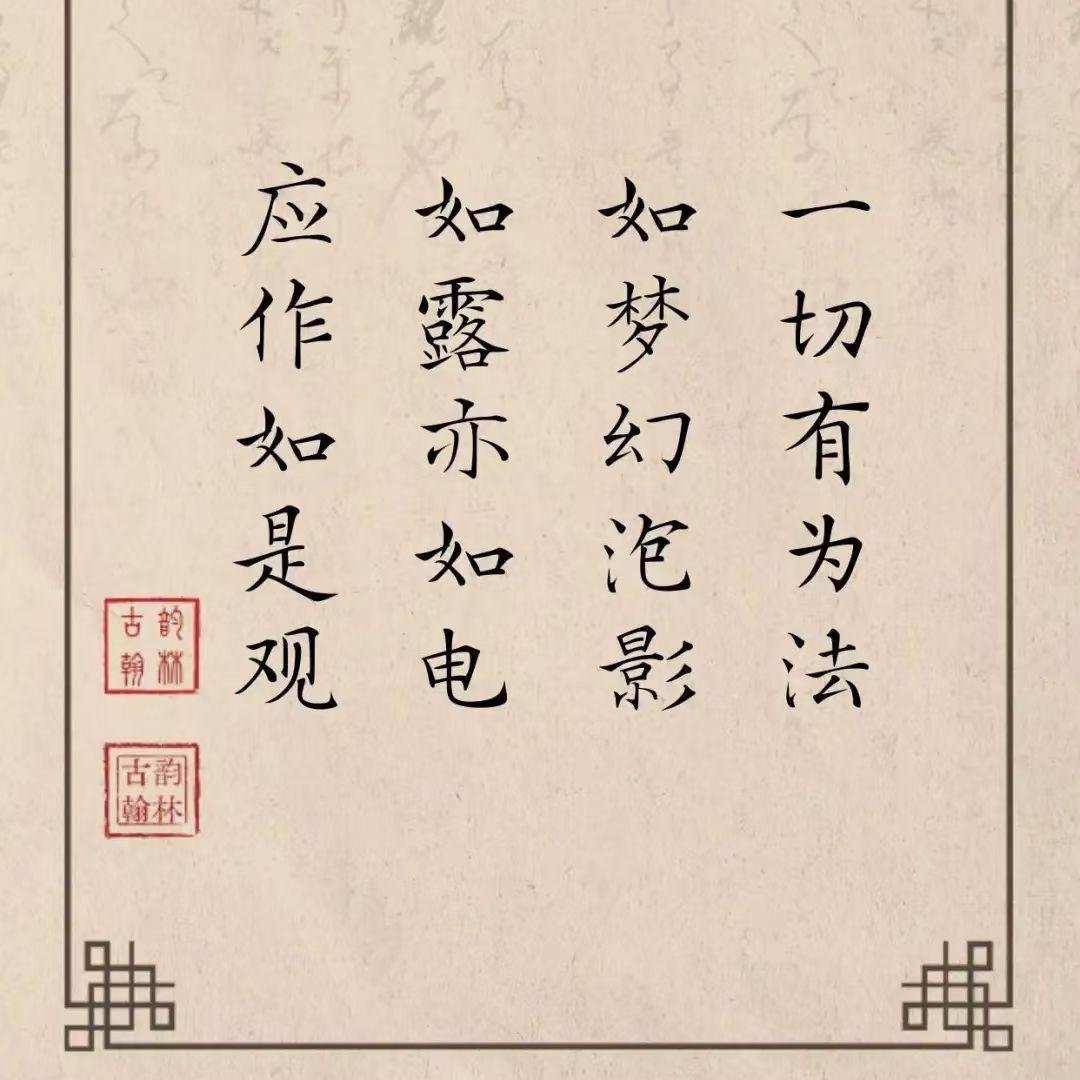 一切有为法
如梦幻泡影
如露亦如电
应作如是观
韵林
古翰
韵林
古翰